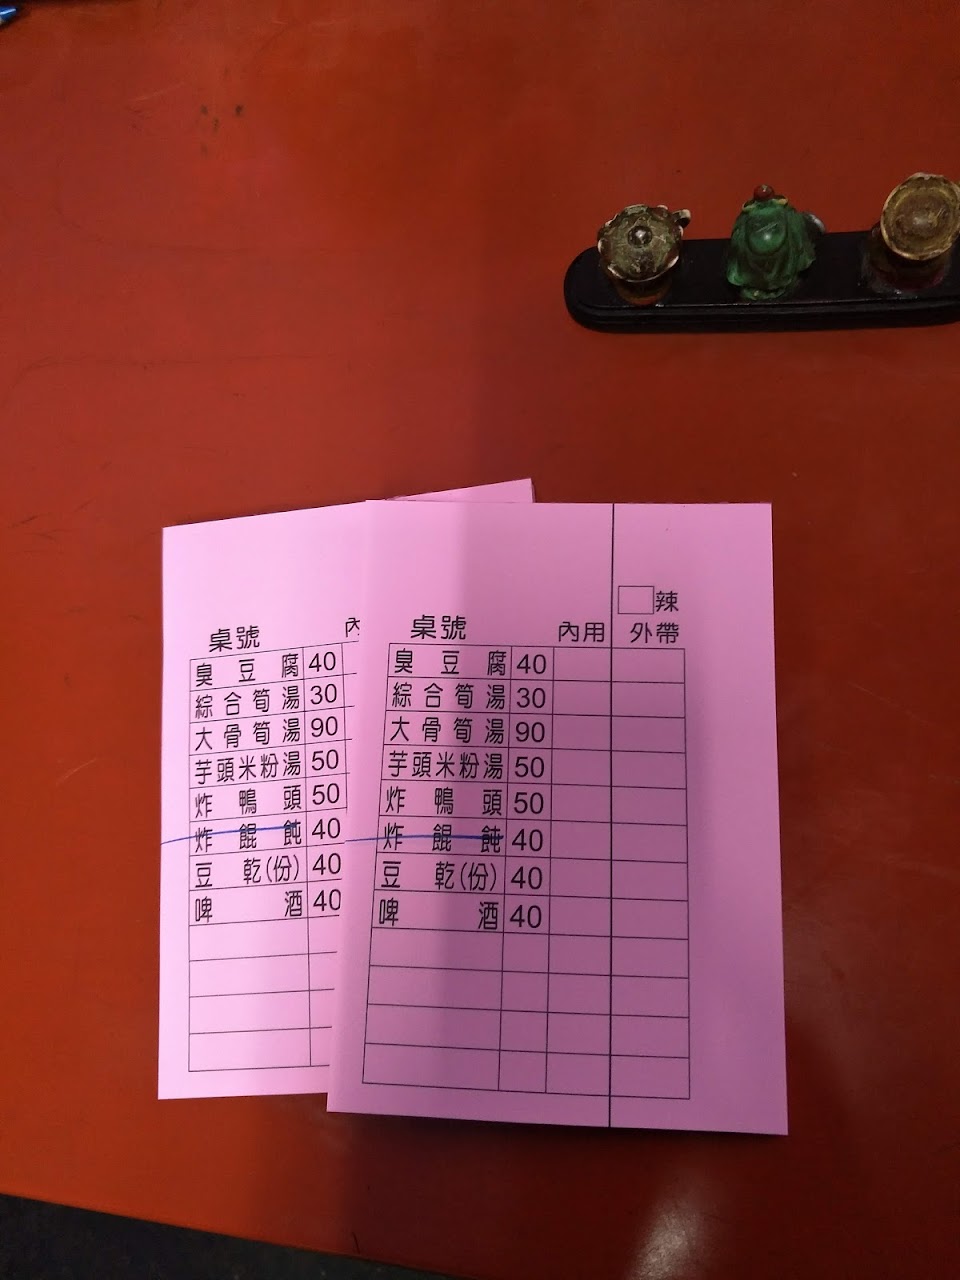 桌號 內
臭豆腐 40
綜合筍湯 30
大骨筍湯 90
芋頭米粉湯 50
炸鴨頭 50
炸餛飩 40
豆乾(份) 40
啤酒 40
辣
桌號 內用 外帶
臭豆腐 40
綜合筍湯 30
大骨筍湯 90
芋頭米粉湯 50
炸鴨頭 50
炸餛飩 40
豆乾(份) 40
啤酒 40